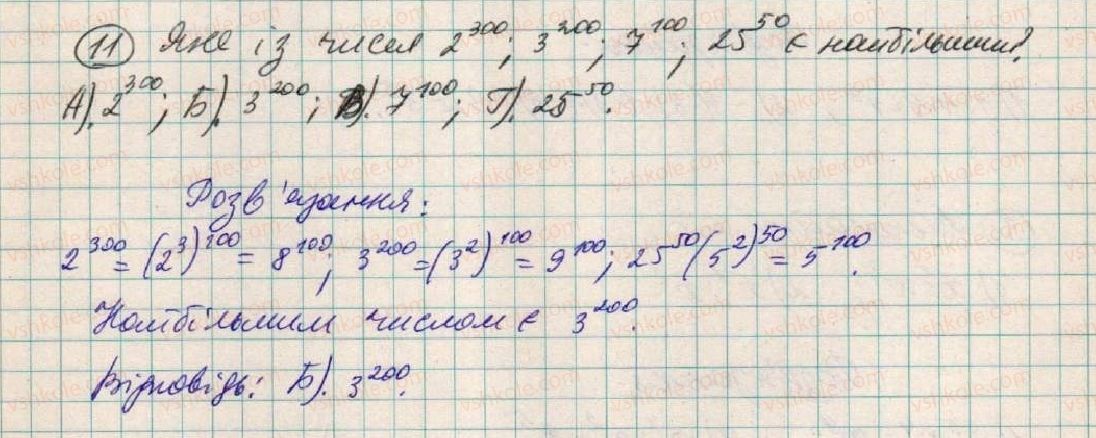 11 Яке із чисел 2^300; 3^200; 7^100; 25^50 є найбільшим?
А). 2^300; Б). 3^200; В). 7^100; Г). 25^50.
Розв'язання:
2^300 = (2^3)^100 = 8^100; 3^200 = (3^2)^100 = 9^100; 25^50 (5^2)^50 = 5^100.
Найбільшим числом є 3^200.
Відповідь: Б). 3^200.